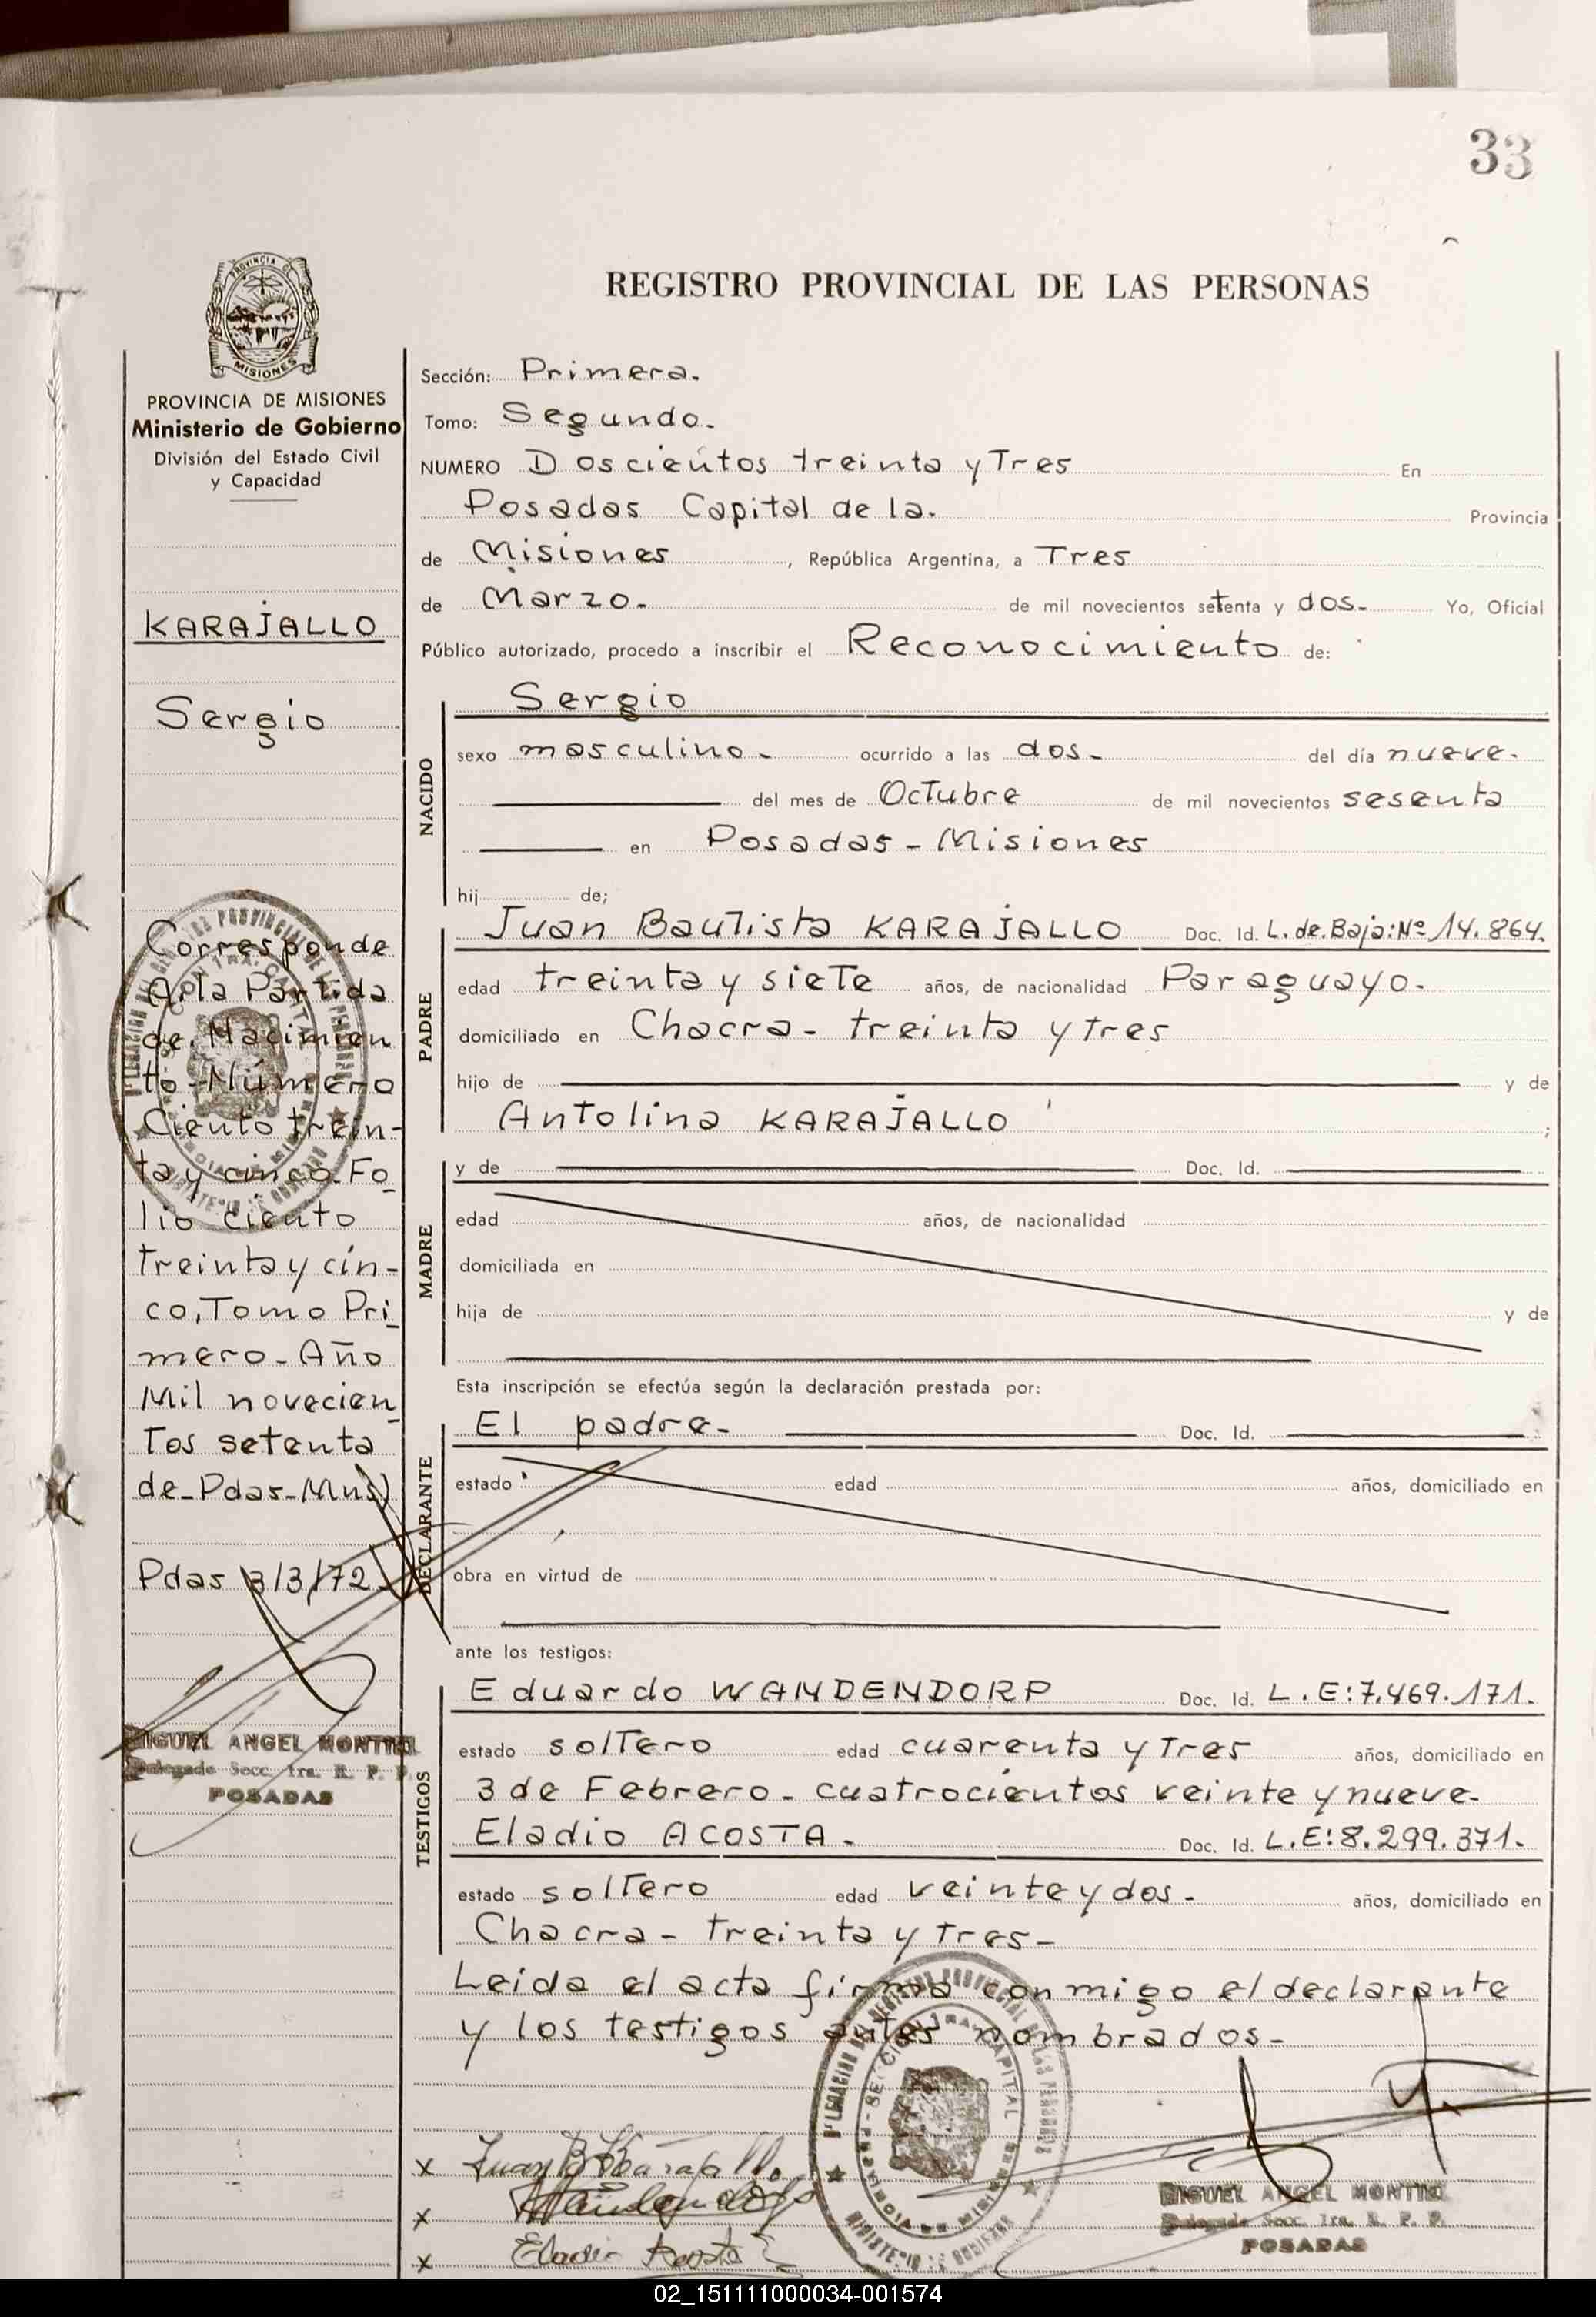 33
PROVINCIA DE
MISIONES
PROVINCIA DE MISIONES
Ministerio de Gobierno
División del Estado Civil
y Capacidad
KARAJALLO
Sergio
Corresponde
A la Partida
de Nacimien
to-Número
Ciento trein-
ta y cinco. Fo
lio ciento
treinta y cin-
co, Tomo Pri
mero-Año
Mil novecien
Tos setenta
de-Pdas-Mns)
Pdas 3/3/72
MIGUEL ANGEL MONTIEL
Delegado Secc. 1ra. R. P. P.
POSADAS
REGISTRO PROVINCIAL DE LAS PERSONAS
Sección: Primera.
Tomo: Segundo.
NUMERO Doscientos treinta y Tres En
Posadas Capital de la. Provincia
de Misiones, República Argentina, a Tres
de Marzo. de mil novecientos setenta y dos. Yo, Oficial
Público autorizado, procedo a inscribir el Reconocimiento de:
NACIDO
Sergio
sexo masculino- ocurrido a las dos- del día nueve.
del mes de Octubre de mil novecientos sesenta
en Posadas-Misiones
hij de;
PADRE
Juan Bautista KARAJALLO Doc. Id. L. de. Baja: Nº 14.864.
edad treinta y siete años, de nacionalidad Paraguayo.
domiciliado en Chacra-treinta y tres
hijo de y de
Antolina KARAJALLO ;
MADRE
y de Doc. Id.
edad años, de nacionalidad
domiciliada en
hija de y de
Esta inscripción se efectúa según la declaración prestada por:
DECLARANTE
El padre- Doc. Id.
estado edad años, domiciliado en
obra en virtud de
ante los testigos:
TESTIGOS
Eduardo WANDENDORP Doc. Id. L.E:7.469.171.
estado solTero edad cuarenta y Tres años, domiciliado en
3 de Febrero- cuatrocientos veinte y nueve-
Eladio ACOSTA. Doc. Id. L.E:8.299.371.
estado solTero edad veinte y dos- años, domiciliado en
Chacra-treinta y Tres-
Leida el acta firma conmigo el declarante
y los testigos antes nombrados-
x Juan B Karajallo
x
x Eladio Acosta
MIGUEL ANGEL MONTIEL
Delegado Secc. 1ra. R. P. P.
POSADAS
02_151111000034-001574